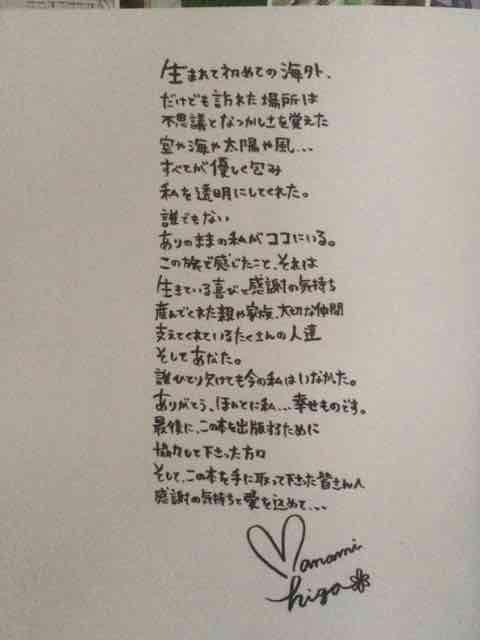 生まれて初めての海外、
だけども訪れた場所は
不思議となつかしさを覚えた
空や海や太陽や風...
すべてが優しく包み
私を透明にしてくれた。
誰でもない
ありのままの私がココにいる。
この旅で感じたこと、それは
生きている喜びと感謝の気持ち
産んでくれた親や家族、大切な仲間
支えてくれているたくさんの人達
そしてあなた。
誰ひとり欠けても今の私はいなかった。
ありがとう、ほんとに私...幸せものです。
最後に、この本を出版するために
協力して下さった方々
そして、この本を手に取って下さった皆さんへ
感謝の気持ちと愛を込めて...
Manami
higa